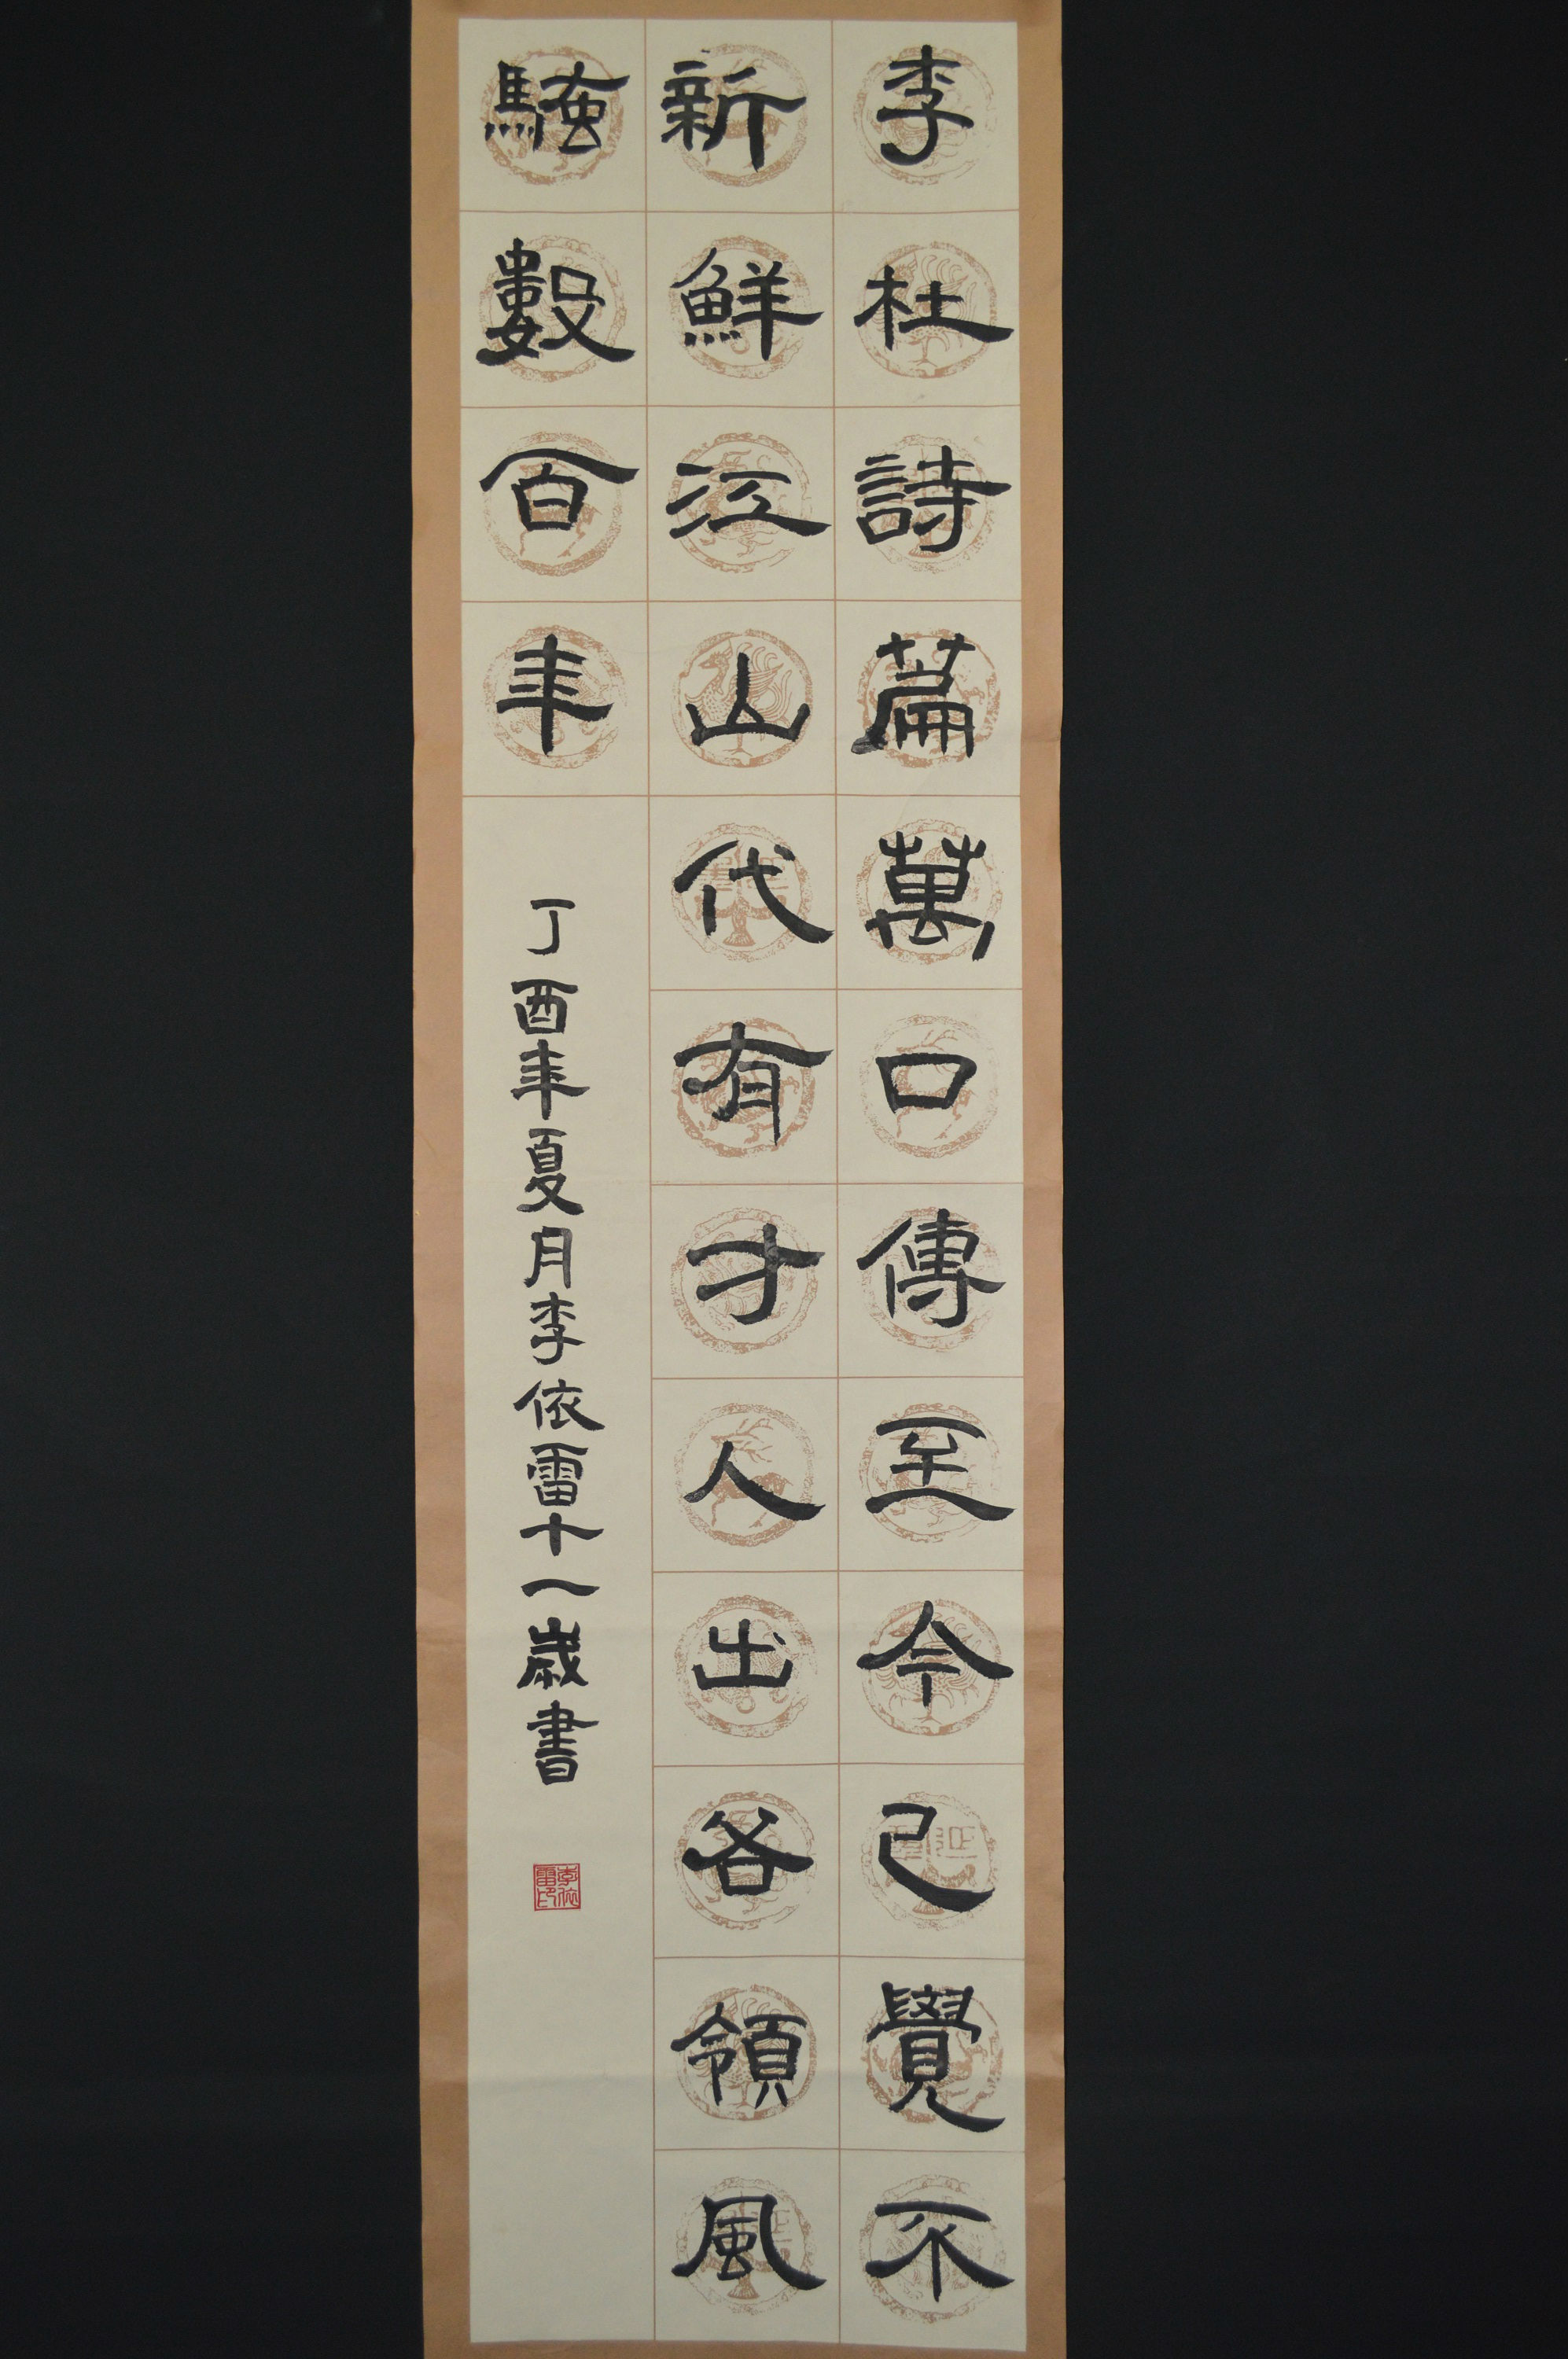 李杜詩篇萬口傳至今已覺不
新鮮江山代有才人出各領風
騷數百年
丁酉年夏月李依雷十一歲書
李依雷印